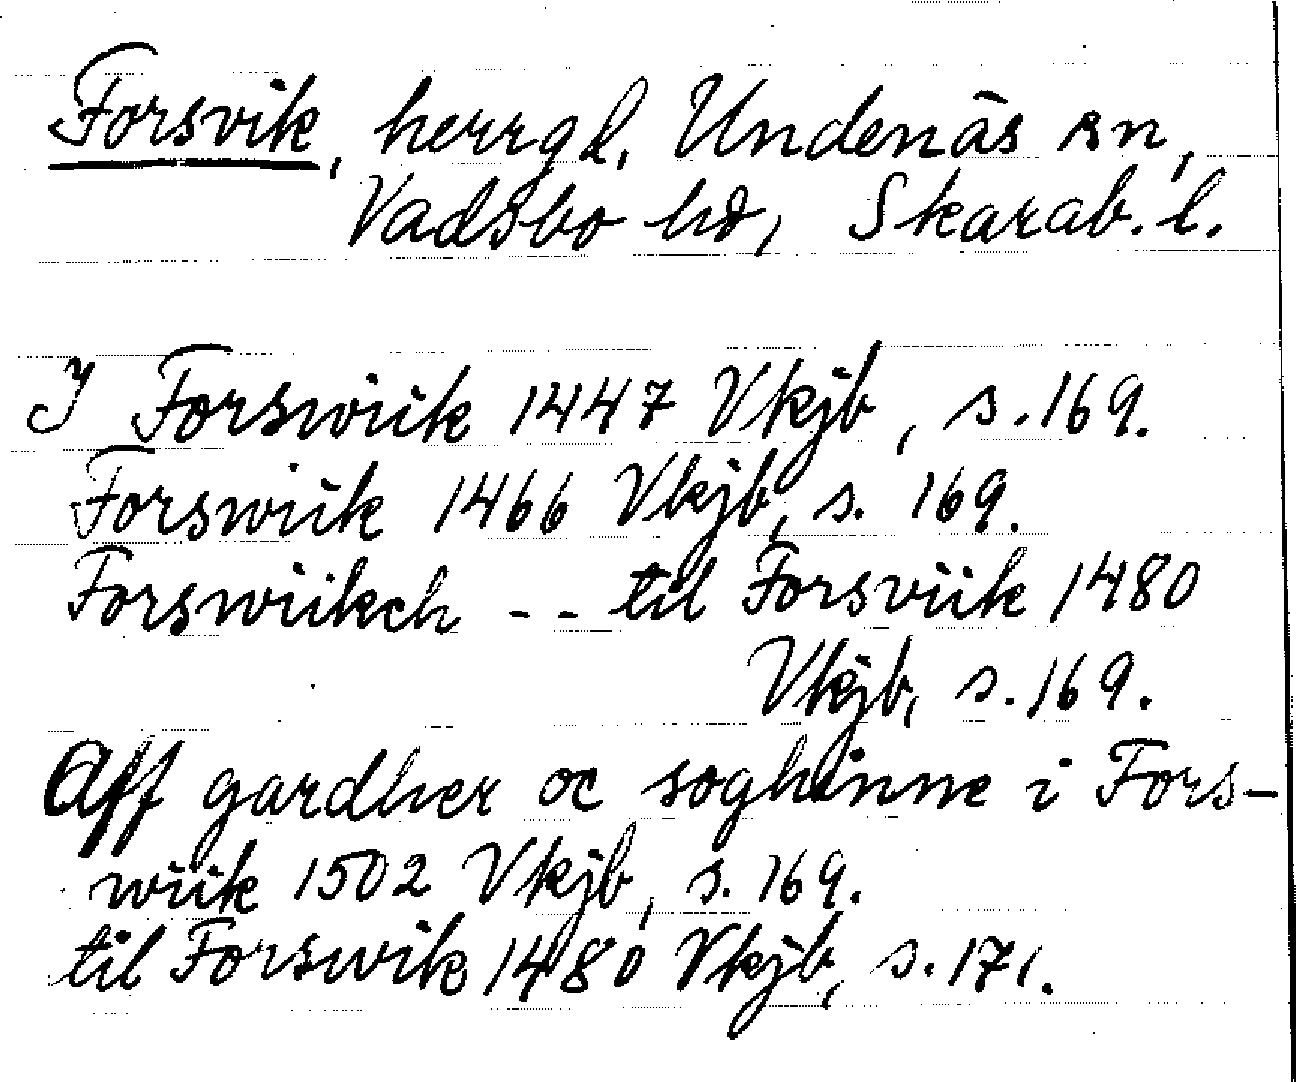 Forsvik, herrgd, Undenäs sn,
Vadsbo hd, Skarab. l.
I Forswiik 1447 Vkjb, s. 169.
Forswiik 1466 Vkjb, s. 169.
Forswiikch -- til Forsviik 1480
Vkjb, s. 169.
Aff gardher oc soghinne i Fors-
wiik 1502 Vkjb, s. 169.
til Forswik 1480 Vkjb, s. 171.